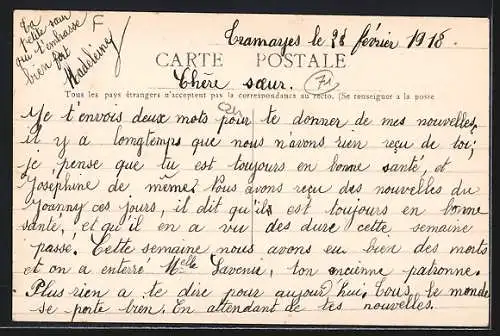 Ta
petite sœur
qui t'embrasse
bien fort
Madeleine
F
Tramayes le 28 février 1918.
CARTE POSTALE
Chère sœur.
71
Tous les pays étrangers n'acceptent pas la correspondance au recto. (Se renseigner à la poste
Je t'envois deux mots pour te donner de mes nouvelles,
il y a longtemps que nous n'avons rien reçu de toi,
je pense que tu est toujours en bonne santé, et
Josephine de même. Nous avons reçu des nouvelles du
Joanny ces jours, il dit qu'ils est toujours en bonne
santé, et qu'il en a vu des dure cette semaine
passé. Cette semaine nous avons eu bien des morts
et on a enterré Melle Lavenir, ton encienne patronne.
Plus rien a te dire pour aujourd'hui. Tous le monde
se porte bien. En attendant de tes nouvelles.